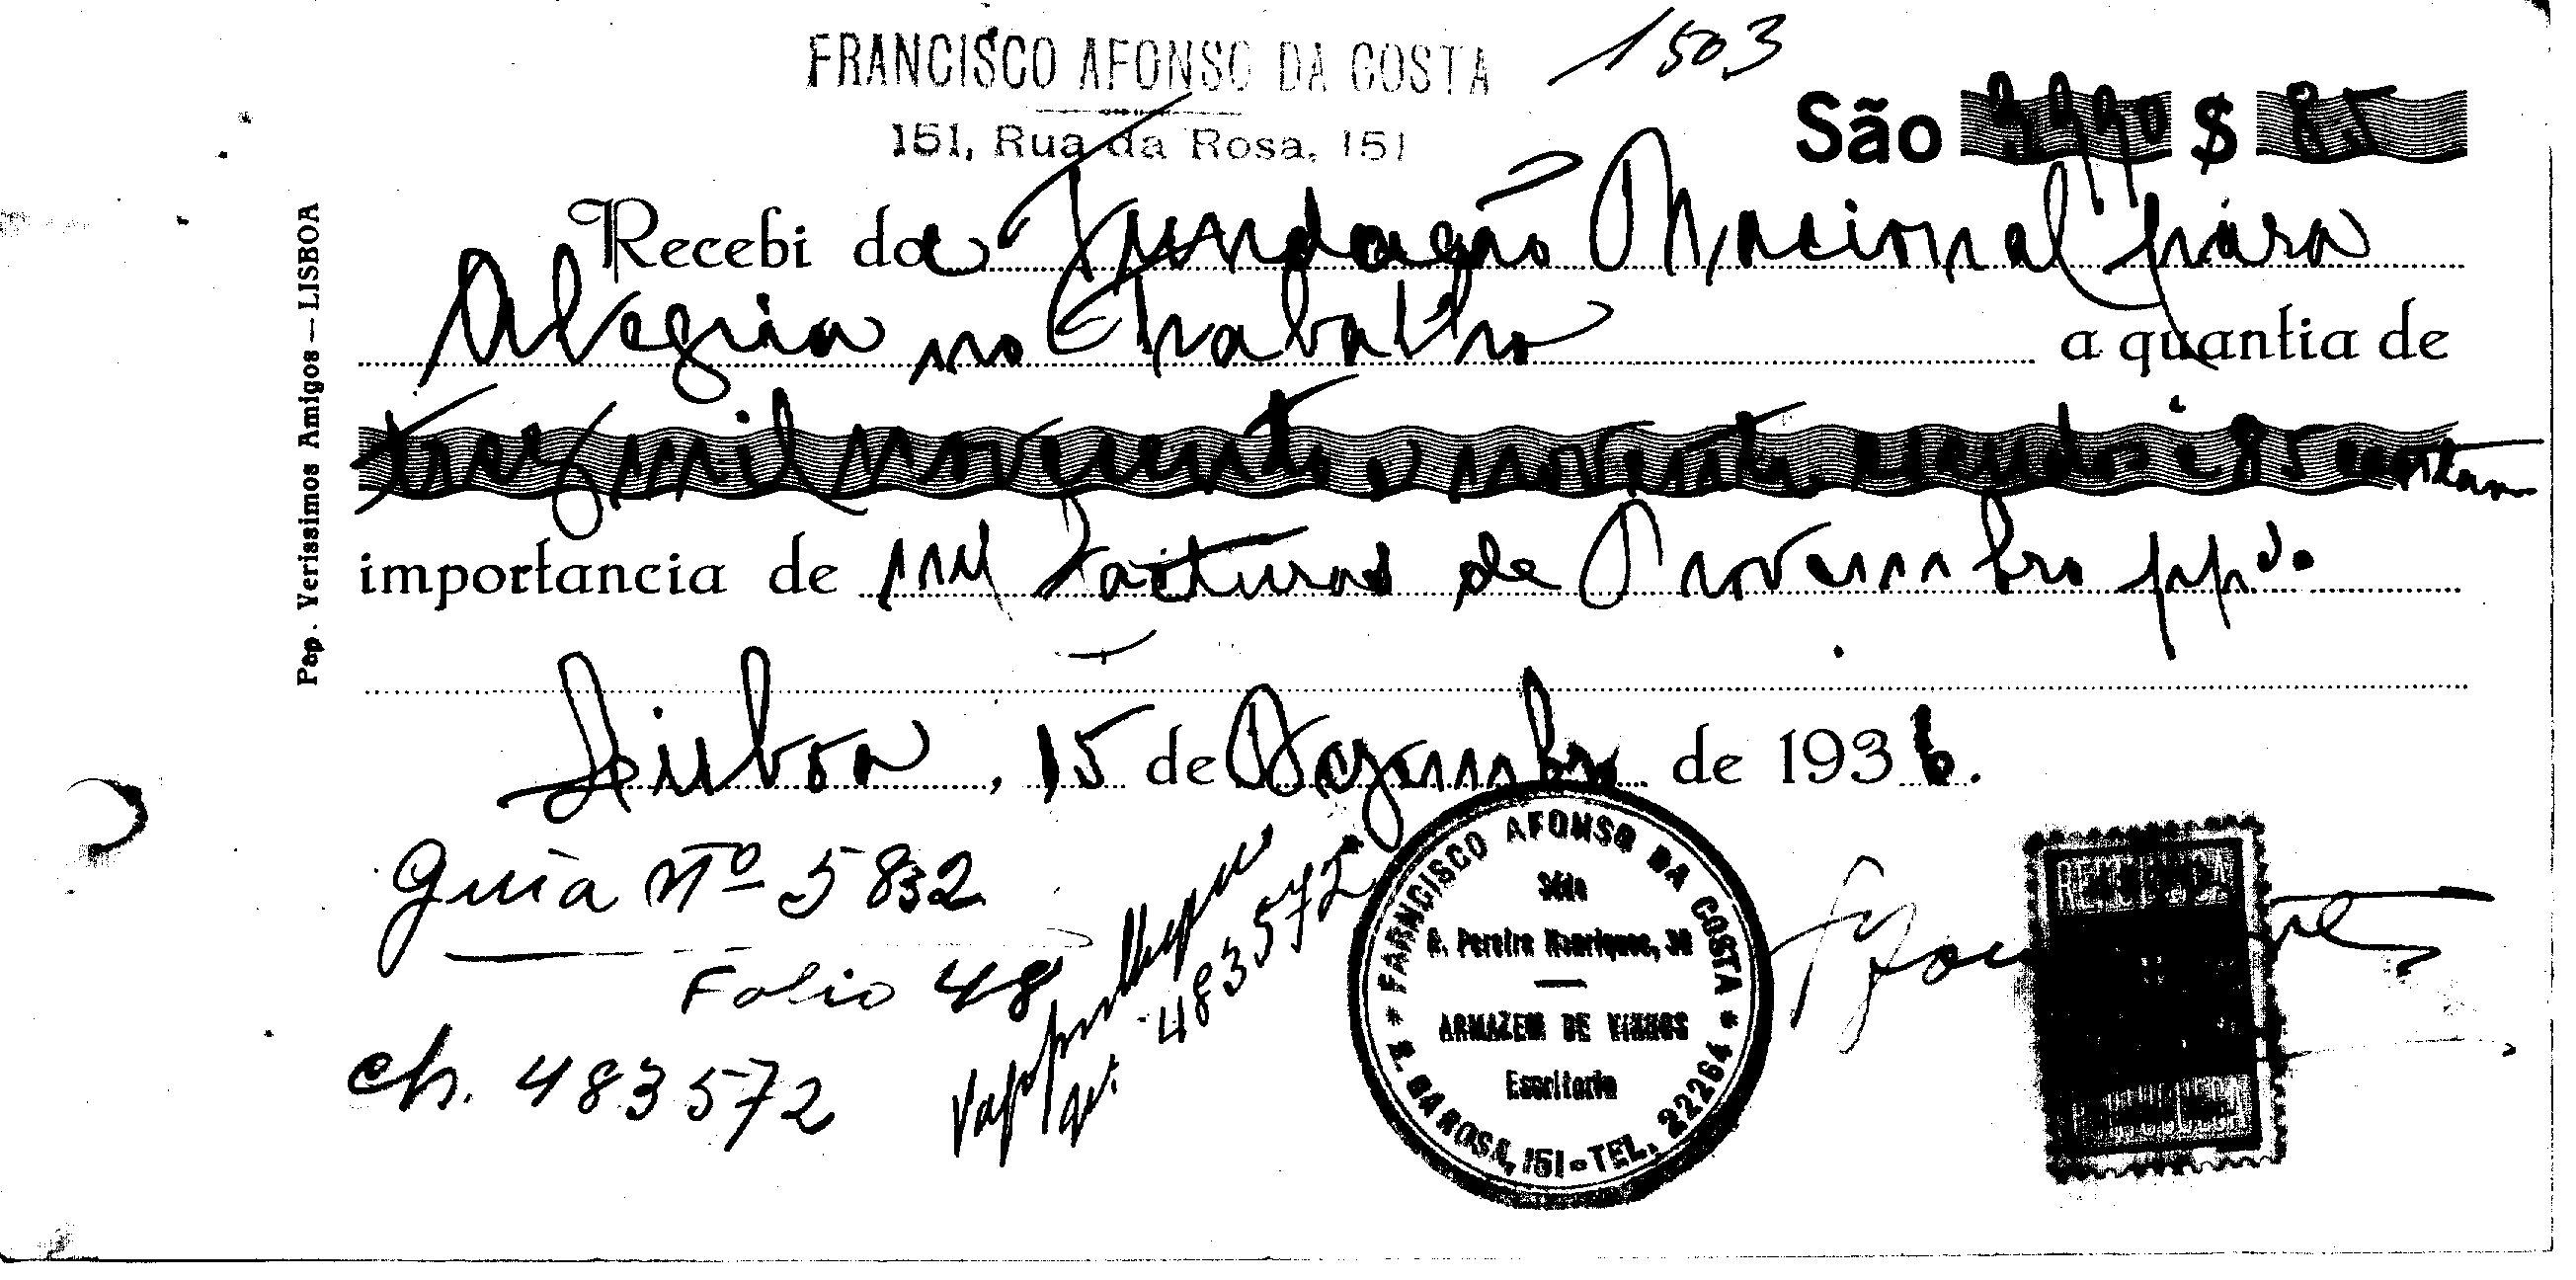 FRANCISCO AFONSO DA COSTA
1503
151, Rua da Rosa, 151
São 3990 $ 85
Recebi da Fundação Nacional pára
Alegria no Trabalho a quantia de
trez mil novecentos e noventa escudos e 85 centavos
importancia de facturas de Novembro pp.
Lisboa, 15 de Dezembro de 1936.
Pap. Verissimos Amigos — LISBOA
Guia Nº 5832
Folio 48
ch. 483572
483572
FARNCISCO AFONSO DA COSTA
Séde
R. Pereira Henriques, 30
ARMAZEM DE VINHOS
Escritorio
R. DA ROSA, 151 - TEL. 22264